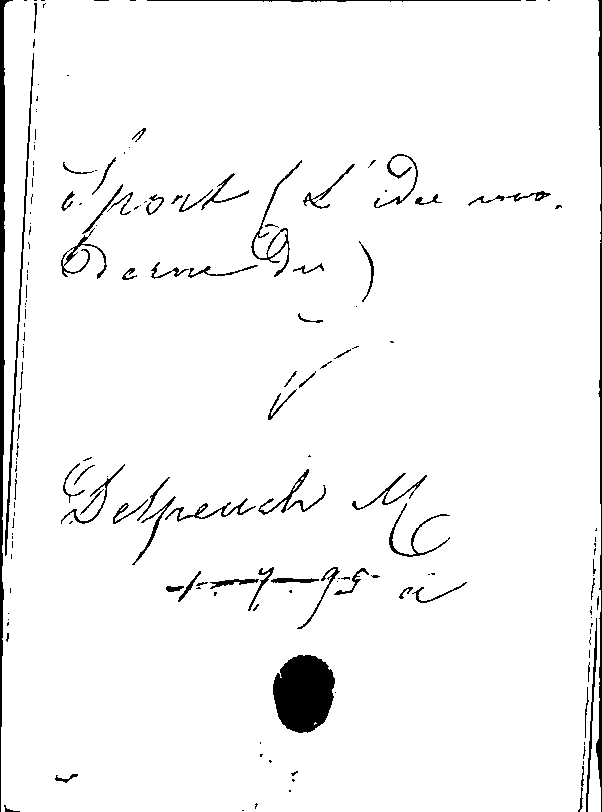 Sport (L'idée mo-
derne du)
V
Despeuch M
1.7.95 a